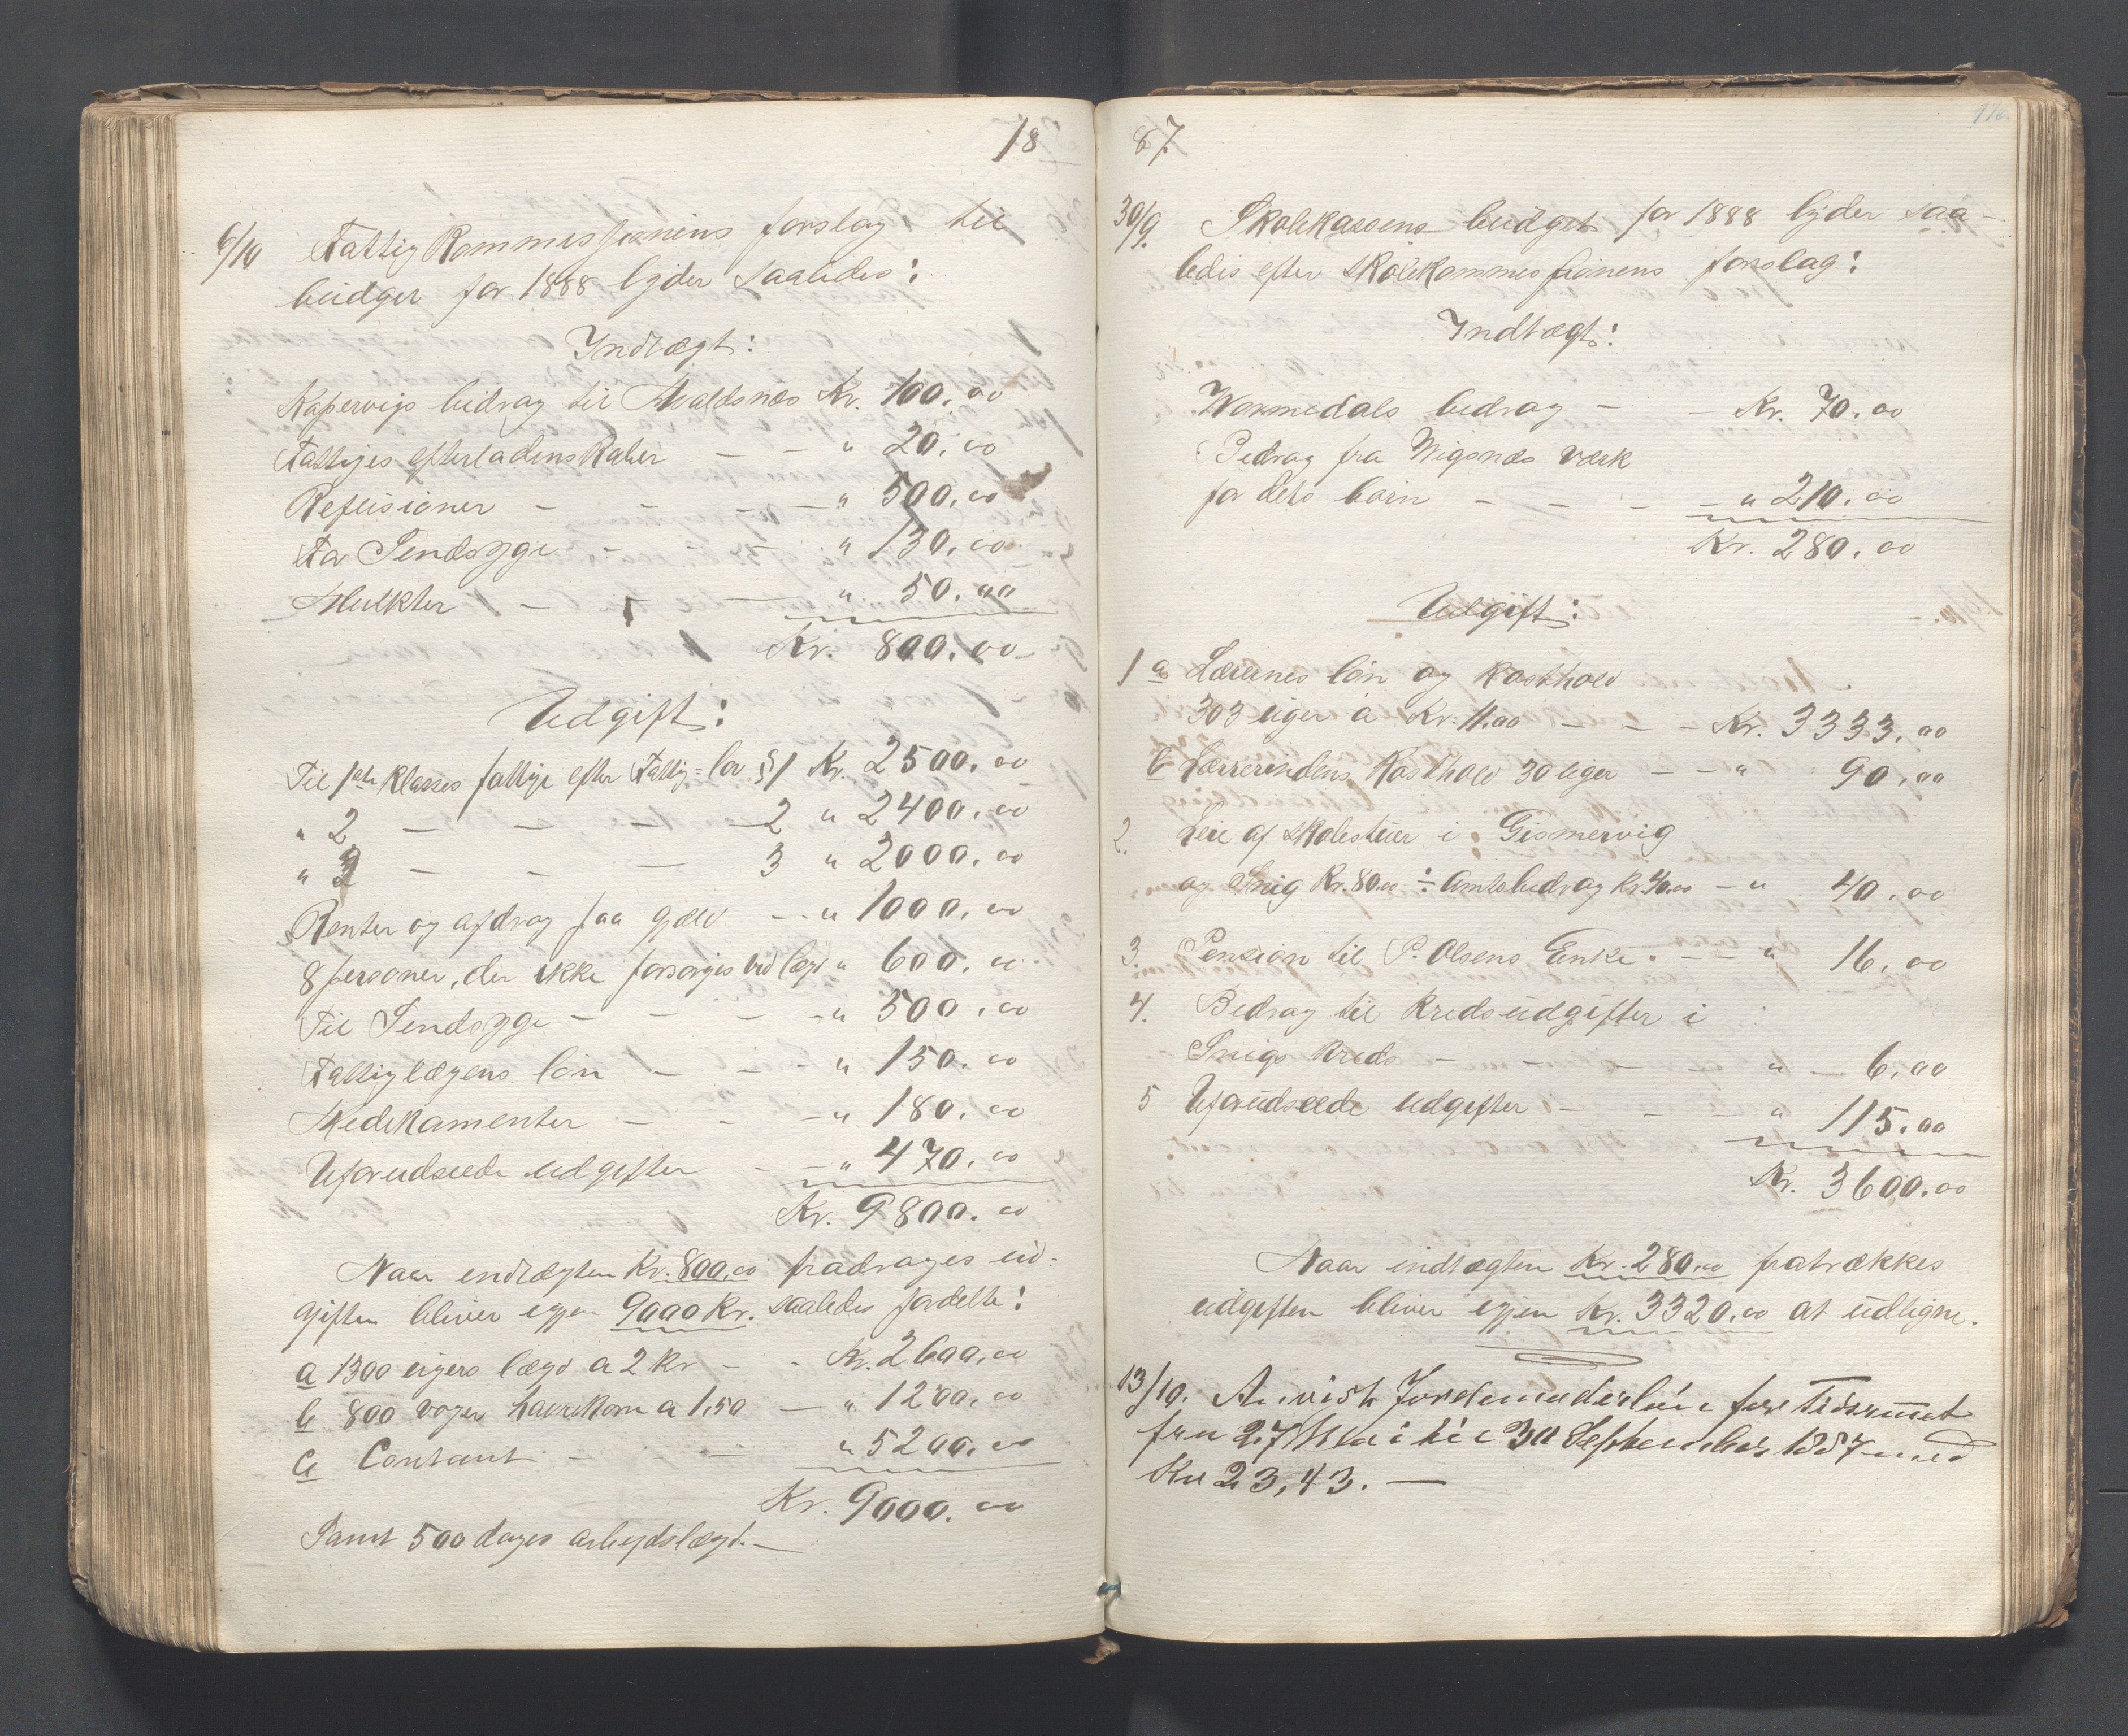 18
6/10 Fattigkommissionens forslag til
budget for 1888 lyder saaledes:
Indtægt:
Kopervigs bidrag til Avaldsnæs Kr. 100.00
Fattiges efterladenskaber - - " 20.00
Refusioner - - - - " 500.00
For Sindsyge - - - " 130.00
Mulkter - - - " 50.00
Kr. 800.00
Udgift:
Til 1ste klasses fattige efter Fattig-lov § 1 Kr. 2500.00
" 2 - - - - 2 " 2400.00
" 3 - - - 3 " 2000.00
Renter og afdrag paa gjæld - - " 1000.00
8 personer, der ikke forsørges ved lægd " 600.00
Til Sindsyge - - - - " 500.00
Fattiglægens løn - - - " 150.00
Medikamenter - - - " 180.00
Uforudseede udgifter - - " 470.00
Kr. 9800.00
Naar indtægten Kr. 800.00 fradrages ud-
giften bliver igjen 9000 Kr. saaledes fordelte:
a 1300 ugers lægd a 2 Kr - - Kr. 2600.00
b 800 voger havrekorn a 1,50 - " 1200.00
c Contant - - - " 5200.00
Kr. 9000.00
Samt 500 dages arbejdslægd. -
87.
30/9. Skolekassens budget for 1888 lyder saa-
ledes efter skolekommissionens forslag:
Indtægt:
Wormedals bedrag - - Kr. 70.00
Bedrag fra Wigsnæs værk
for dets børn - - - - " 210.00
Kr. 280.00
Udgift:
1 a Lærernes løn og kosthold
303 uger a Kr. 11.00 - - - Kr. 3333.00
b Lærerindens Kosthold 30 uger - - " 90.00
2. Leie af skolestuer i Gismervig
og Snig Kr. 80.00 ÷ Amtsbedrag Kr. 40.00 - " 40.00
3. Pension til P. Olsens Enke. - - " 16.00
4. Bedrag til kredsudgifter i
Snigs kreds - - - - - " - 6.00
5 Uforudseede udgifter - - - - " 115.00
Kr. 3600.00
Naar indtægten Kr. 280.00 fratrækkes
udgiften bliver igjen Kr. 3320.00 at udligne.
13/10. Anvist Jordemoderløn for Tidsrummet
fra 27 Mai til 30 September 1887 med
Kr 23,43. -